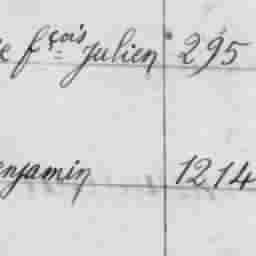 e fçois Julien 295
enjamin 1214